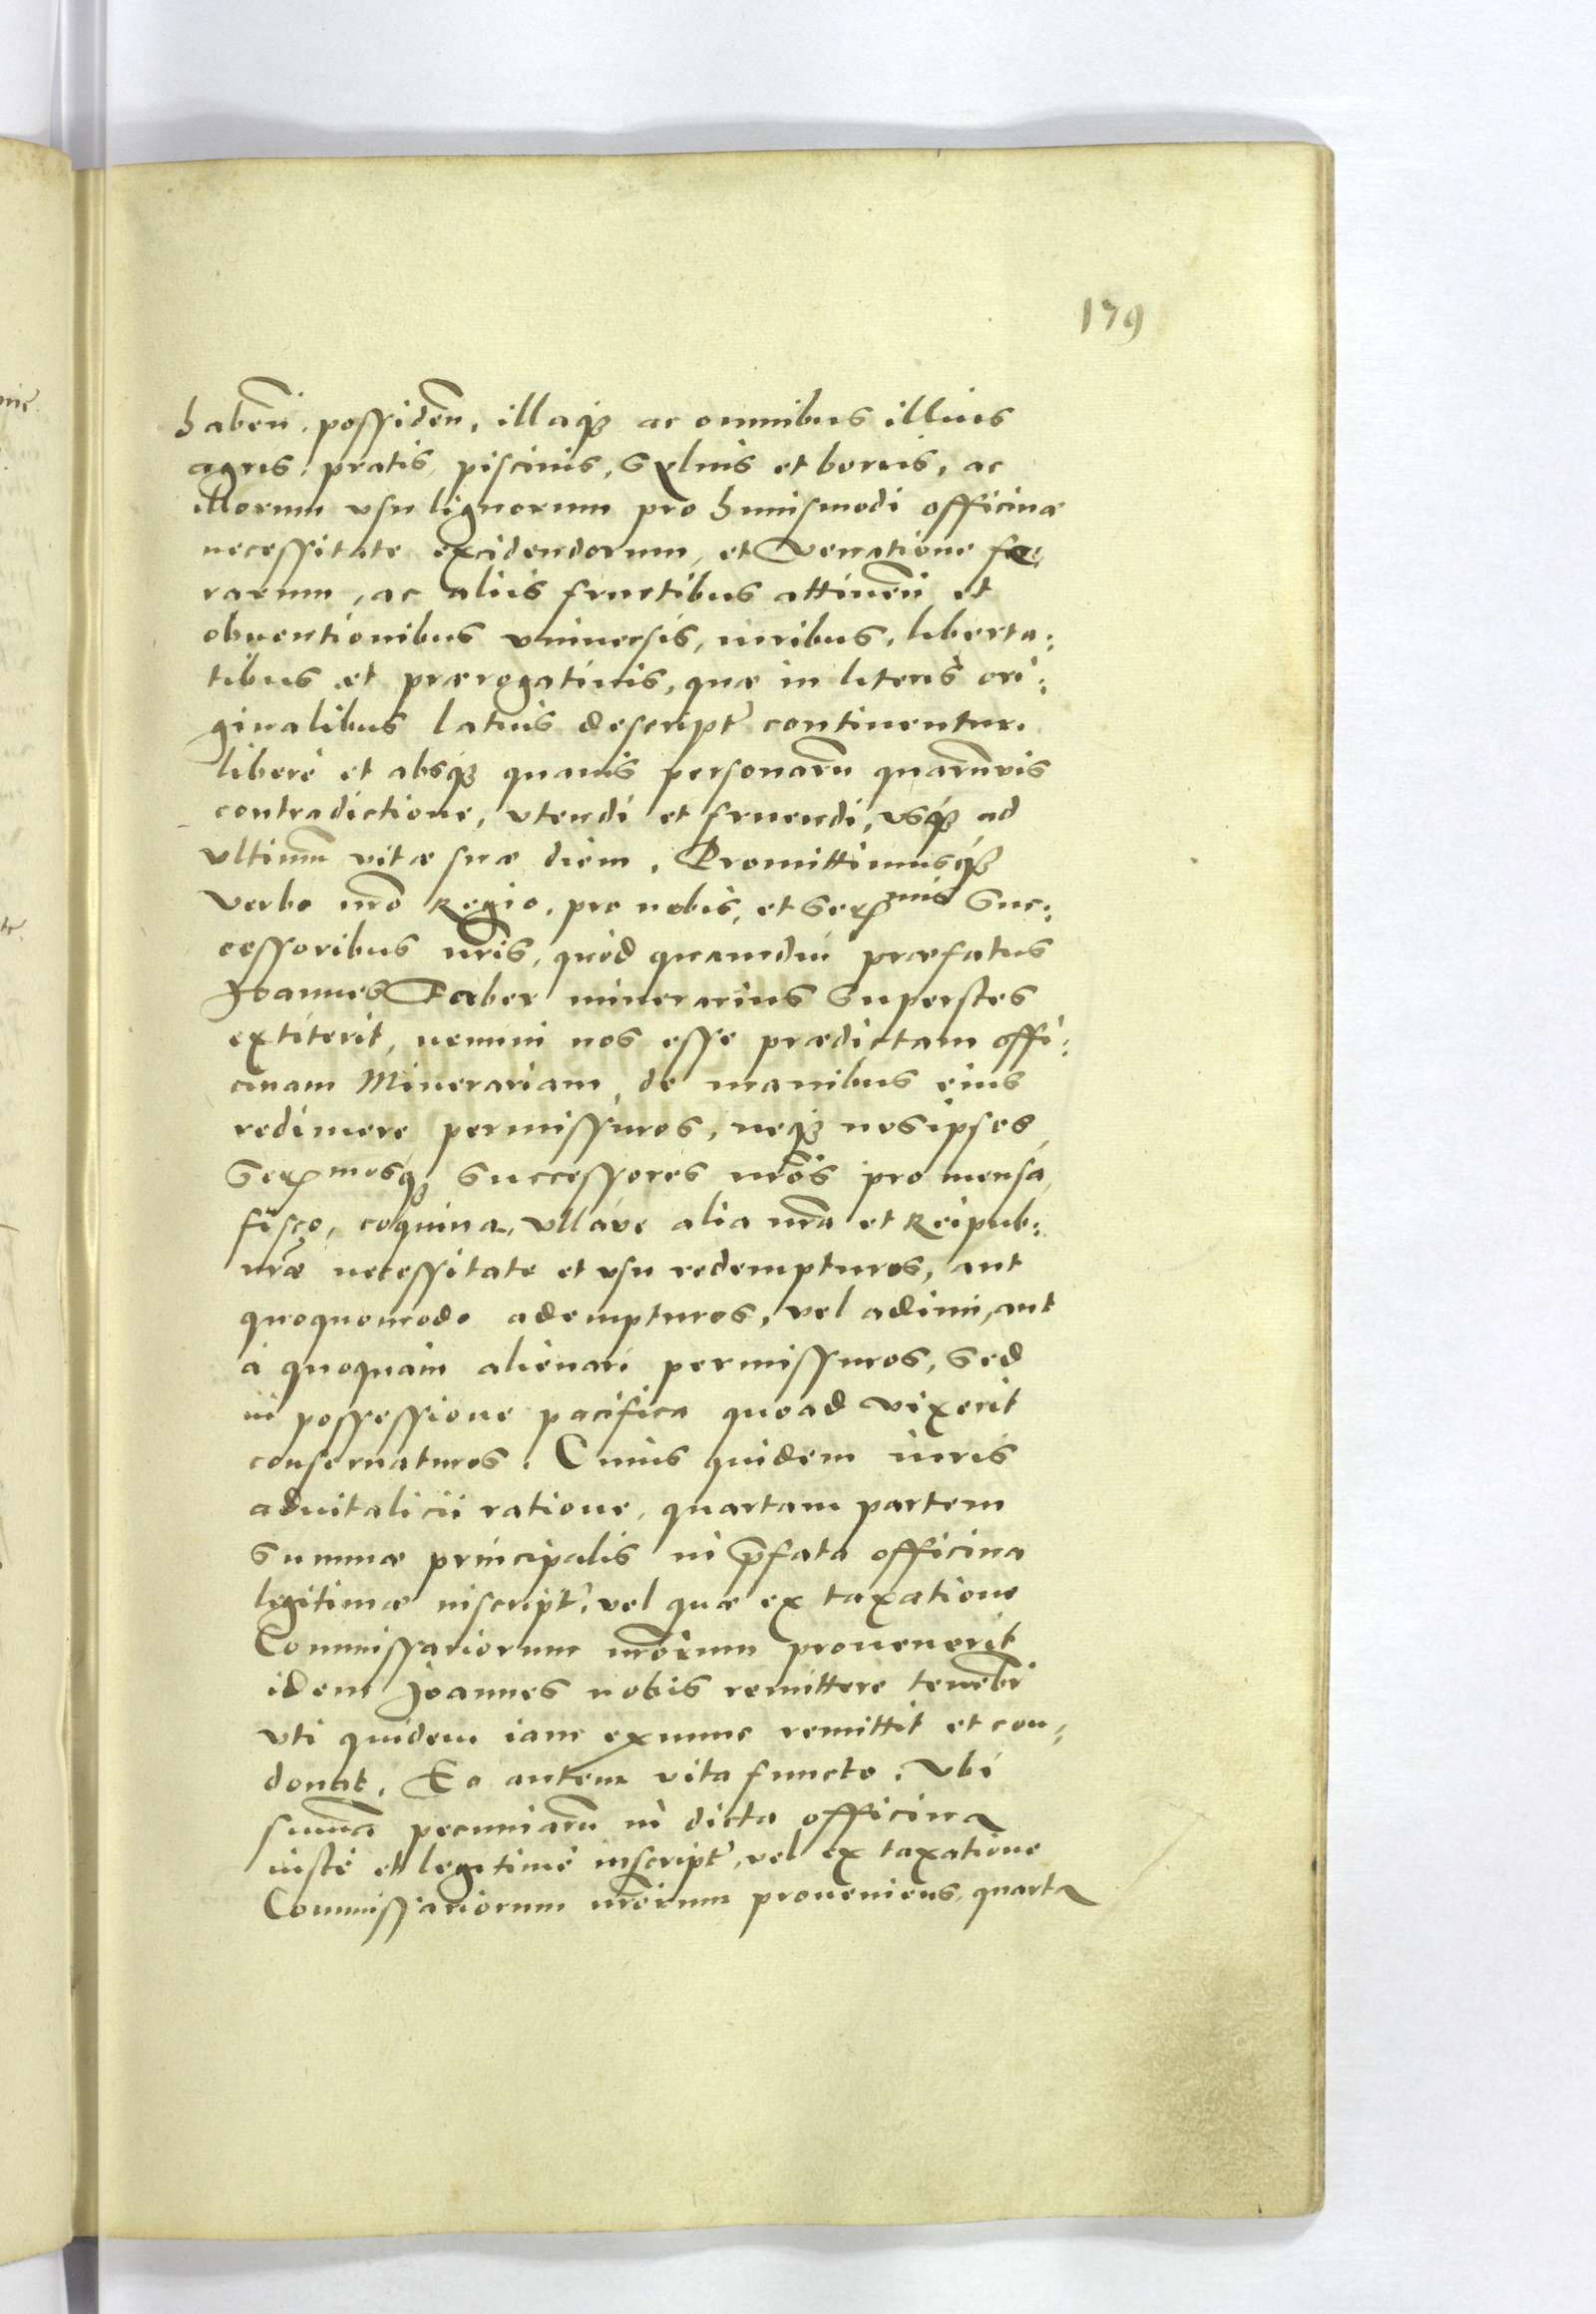 179
haben̄, possiden̄, illaqʒ ac omnibus illius
agris, pratis, piscinis, Sylvis et boruis, ac
illorum vsu lignorum pro huiusmodi officinæ
necessitate excidendorum, et Venatione fe-
rarum, ac aliis fructibus attinen̄ et
obuentionibus vniuersis, iuribus, liberta:
tibus et prærogatiuis, quæ in literis ori:
ginalibus latius descript' continentur.
libere et absqʒ quauis personarū quarūvis
contradictione, vtendi et fruendi, vsqʒ ad
vltimū vitæ suæ diem. Promittimusqʒ
verbo nr̄o Regio, pro nobis, et Serᵐⁱˢ Suc:
cessoribus nr̄is, quòd quamdiu præfatus
Joannes Faber minerarius Superstes
extiterit, nemini nos esse prædictam offi:
cinam Minerariam, de manibus eius
redimere permissuros, neqʒ nosipsos,
Serᵐᵒˢqʒ Successores nr̄os pro mensa,
fisco, coquina, vllàve alia nr̄a et Reipub:
nr̄æ necessitate et vsu redempturos, aut
quoquomodo adempturos, vel adimi, aut
à quoquam alienari permissuros, Sed
in possessione pacifica quoad vixerit
conseruaturos. Cuius quidem iuris
aduitalicii ratione, quartam partem
Summæ principalis in p̄fata officina
legitimæ inscript', vel quæ ex taxatione
Commissariorum nr̄orum prouenerit
idem Joannes nobis remittere teneb̄r
vti quidem iam exnunc remittit et con-
donat. Eo autem vita functo, Vbi
sum̄a pecuniarū in dicta officina
iustè et legitimè inscript', vel ex taxatione
Commissariorum nr̄orum proueniens, quarta